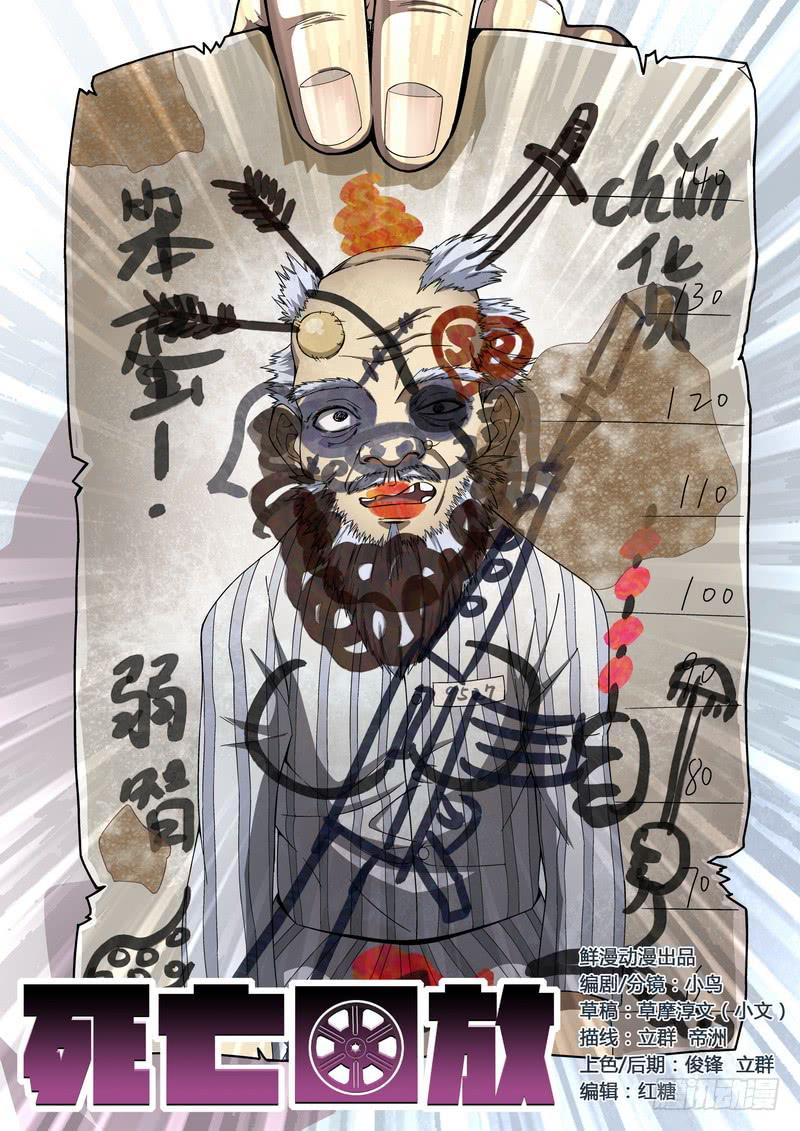 笨蛋!
chǔn
货
弱智
140
130
120
110
100
90
80
70
9527
死亡回放
鲜漫动漫出品
编剧/分镜：小鸟
草稿：草摩淳文（小文）
描线：立群 帝洲
上色/后期：俊锋 立群
编辑：红糖
腾讯动漫